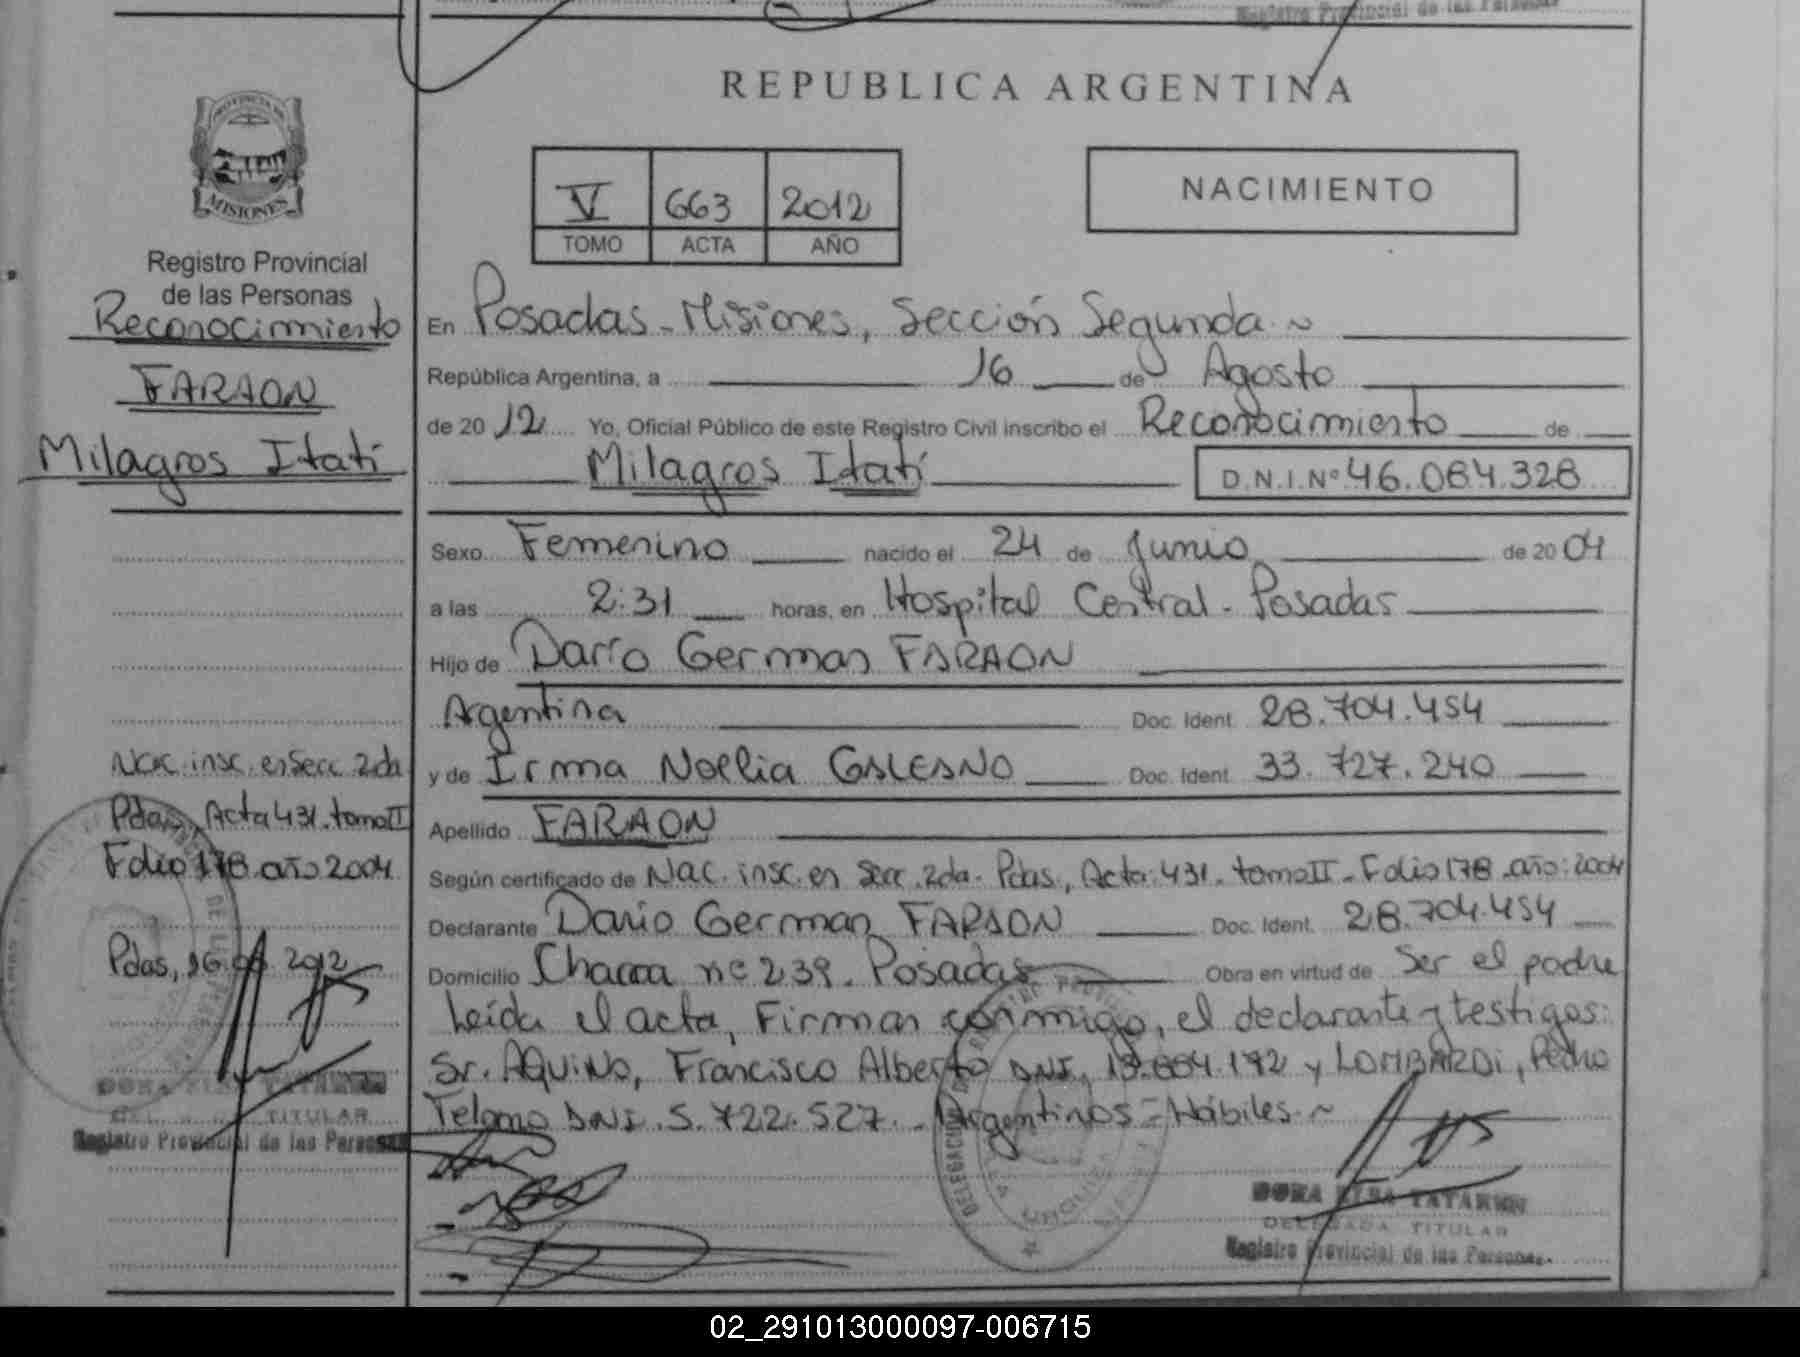 Registro Provincial de las Personas
REPUBLICA ARGENTINA
PROVINCIA DE
MISIONES
V 663 2012
TOMO ACTA AÑO
NACIMIENTO
Registro Provincial
de las Personas
Reconocimiento
FARAON
Milagros Itatí
Nac. insc. en Secc. 2da
Pdas., Acta 431. tomo II
Folio 178. año 2004
Pdas, 16 2012
TITULAR
Registro Provincial de las Personas
En Posadas - Misiones, Sección Segunda. ~
República Argentina, a 16 de Agosto
de 20 12 Yo, Oficial Público de este Registro Civil inscribo el Reconocimiento de
Milagros Itatí D.N.I.Nº 46.084.328
Sexo Femenino nacido el 24 de Junio de 20 04
a las 2:31 horas, en Hospital Central - Posadas
Hijo de Darío German FARAON
Argentina Doc. Ident. 28.704.454
y de Irma Noelia GALEANO Doc. Ident. 33.727.240
Apellido FARAON
Según certificado de Nac. insc. en Secc. 2da. Pdas., Acta: 431. tomo II - Folio 178. año: 2004
Declarante Dario German FARAON Doc. Ident. 28.704.454
Domicilio Chacra nº 239. Posadas Obra en virtud de Ser el padre
Leída el acta, Firman conmigo, el declarante y testigos:
Sr. AQUINO, Francisco Alberto DNI. y LOMBARDI, Pedro
Telmo DNI. 5.722.527. - Argentinos = Hábiles. ~
DELEGADA TITULAR
Registro Provincial de las Personas
02_291013000097-006715